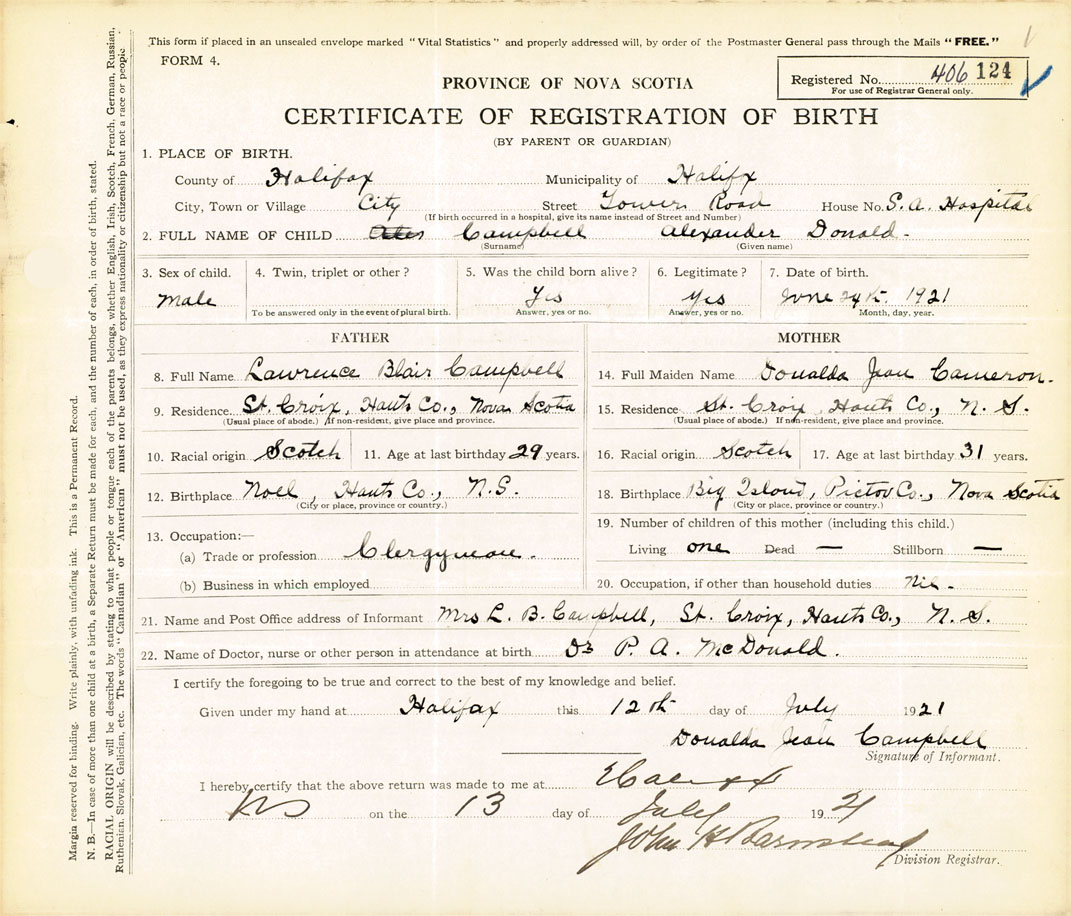 This form if placed in an unsealed envelope marked "Vital Statistics" and properly addressed will, by order of the Postmaster General pass through the Mails "FREE."
FORM 4.
Registered No. 406 124
For use of Registrar General only.
PROVINCE OF NOVA SCOTIA
CERTIFICATE OF REGISTRATION OF BIRTH
(BY PARENT OR GUARDIAN)
1. PLACE OF BIRTH.
County of Halifax Municipality of Halifx
City, Town or Village City Street Tower Road House No. S. A. Hospital
(If birth occurred in a hospital, give its name instead of Street and Number)
2. FULL NAME OF CHILD Campbell Alexander Donald.
(Surname) (Given name)
3. Sex of child. 4. Twin, triplet or other? 5. Was the child born alive? 6. Legitimate? 7. Date of birth.
Male Yes Yes June 24th. 1921
To be answered only in the event of plural birth. Answer, yes or no. Answer, yes or no. Month, day, year.
FATHER
8. Full Name Lawrence Blair Campbell
9. Residence St. Croix, Hants Co., Nova Scotia
(Usual place of abode.) If non-resident, give place and province.
10. Racial origin Scotch 11. Age at last birthday 29 years.
12. Birthplace Noel, Hants Co., N.S.
(City or place, province or country.)
13. Occupation:—
(a) Trade or profession Clergyman.
(b) Business in which employed
MOTHER
14. Full Maiden Name Donalda Jean Cameron.
15. Residence St. Croix, Hants Co., N. S.
(Usual place of abode.) If non-resident, give place and province.
16. Racial origin Scotch 17. Age at last birthday 31 years.
18. Birthplace Big Island, Pictou Co., Nova Scotia
(City or place, province or country.)
19. Number of children of this mother (including this child.)
Living one Dead — Stillborn —
20. Occupation, if other than household duties Nil.
21. Name and Post Office address of Informant Mrs L. B. Campbell, St. Croix, Hants Co., N. S.
22. Name of Doctor, nurse or other person in attendance at birth Dr P. A. McDonald.
I certify the foregoing to be true and correct to the best of my knowledge and belief.
Given under my hand at Halifax this 12th day of July 1921
Donalda Jean Campbell
Signature of Informant.
I hereby certify that the above return was made to me at Halifax
NS on the 13 day of July 1921
John H Barnstead
Division Registrar.
Margin reserved for binding. Write plainly, with unfading ink. This is a Permanent Record.
N. B.—In case of more than one child at a birth, a Separate Return must be made for each, and the number of each, in order of birth, stated.
RACIAL ORIGIN will be described by stating to what people or tongue each of the parents belongs, whether English, Irish, Scotch, French, German, Russian,
Ruthenian, Slovak, Galician, etc. The words "Canadian" or "American" must not be used, as they express nationality or citizenship but not a race or people.